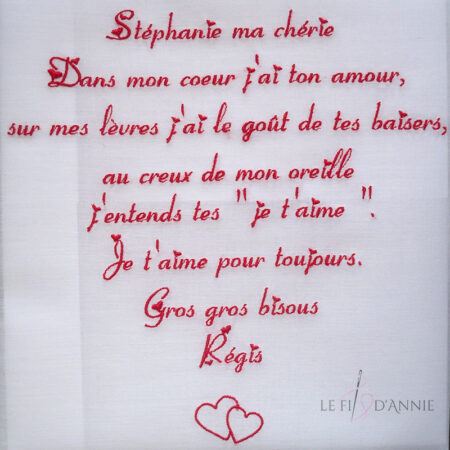 Stéphanie ma chérie
Dans mon coeur j'ai ton amour,
sur mes lèvres j'ai le goût de tes baisers,
au creux de mon oreille
j'entends tes " je t'aime ".
Je t'aime pour toujours.
Gros gros bisous
Régis
LE FIL D'ANNIE